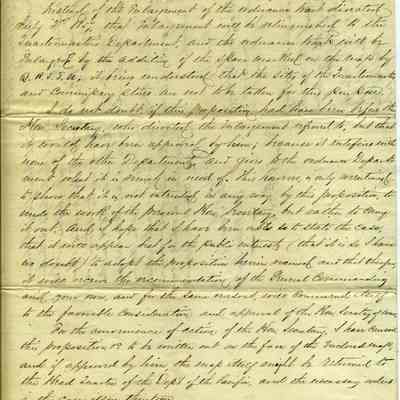 Instead of the Enlargement of the ordnance Yard directed
July 2d 18, that Enlargement will be relinquished to the
Quartermasters Department, and the ordnance Yard will be
Enlarged by the addition of the space marked on the map by
it being understood that the sites of the Quartermasters
and Commissary stores are not to be taken for this purpose.
I do not doubt if this proposition had have been before the
Hon. Secretary, who directed the Enlargement referred to, but that
it would have been approved by him; because it interferes with
none of the other Departments, and gives to the ordnance Depart-
ment what it is much in need of. This reason is only mentioned
to show that it is not intended in any way, by this proposition, to
undo the work of the present Hon. Secretary, but rather to carry
it out. And I hope that I have been able so to state the case,
that it will appear best for the public interests (that it is so I have
no doubt) to adopt the proposition herein named, and that therefore
it will receive the recommendation of the General Commanding
and your own, and for the same reasons, will commend itself
to the favorable consideration and approval of the Hon. Secretary of War.
For the convenience of action of the Hon. Secretary, I have caused
this proposition to be written out on the face of the enclosed map,
and if approved by him, the map might be returned to
the Head Quarters of the Dept of the Pacific, and the necessary orders
in the case